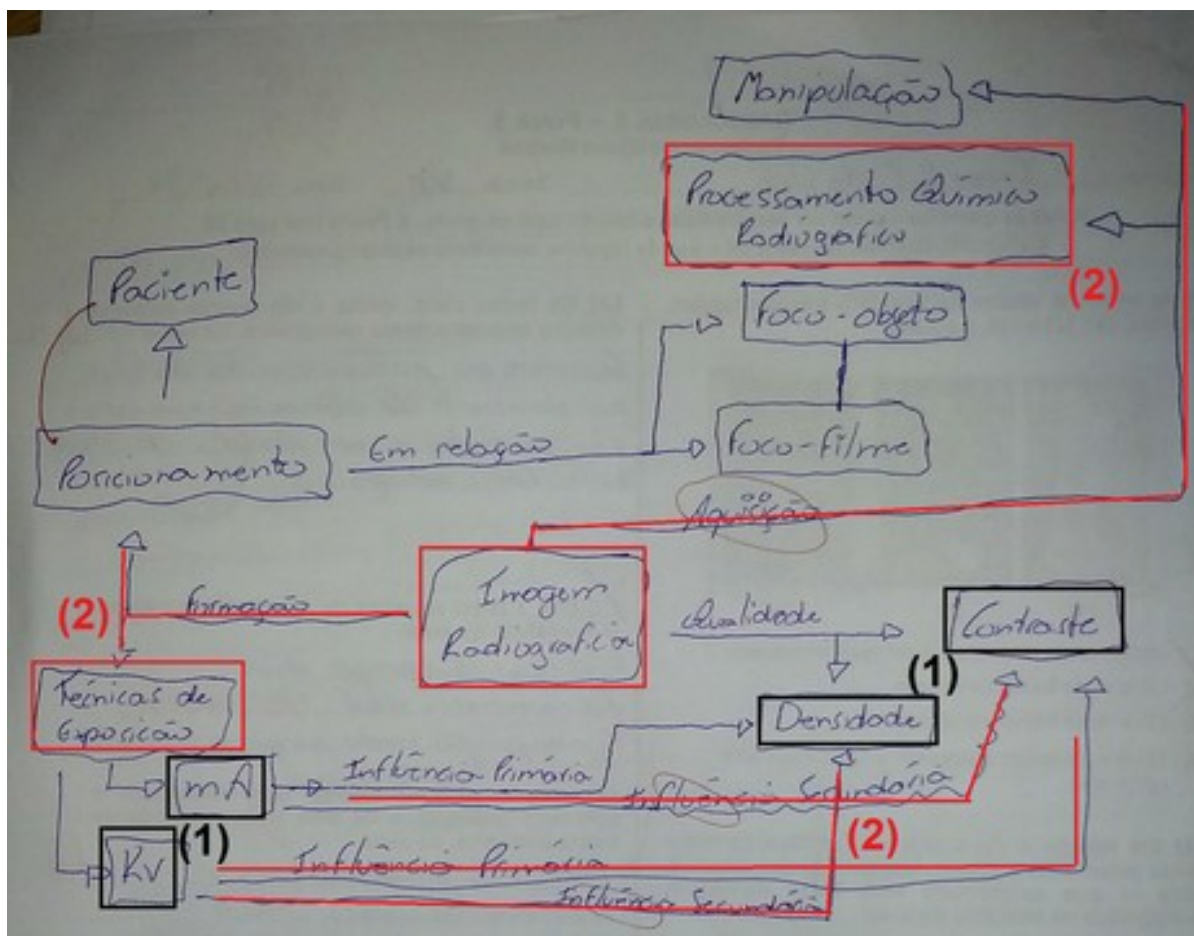 Manipulação
Processamento Químico
Radiográfico
(2)
Paciente
Foco-objeto
Posicionamento
Em relação
Foco-filme
Aquisição
(2)
Formação
Imagem
Radiografica
Qualidade
Contraste
(1)
Técnicas de
Exposição
Densidade
mA
Influência Primária
Influência Secundária
(1)
(2)
Kv
Influência Primária
Influência Secundária